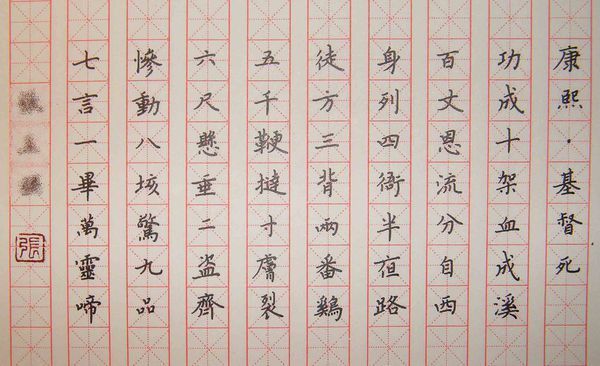 康熙·基督死
功成十架血成溪
百丈恩流分自西
身列四衙半亱路
徒方三背兩番鷄
五千鞭撻寸膚裂
六尺懸垂二盜齊
慘動八垓驚九品
七言一畢萬靈啼
張